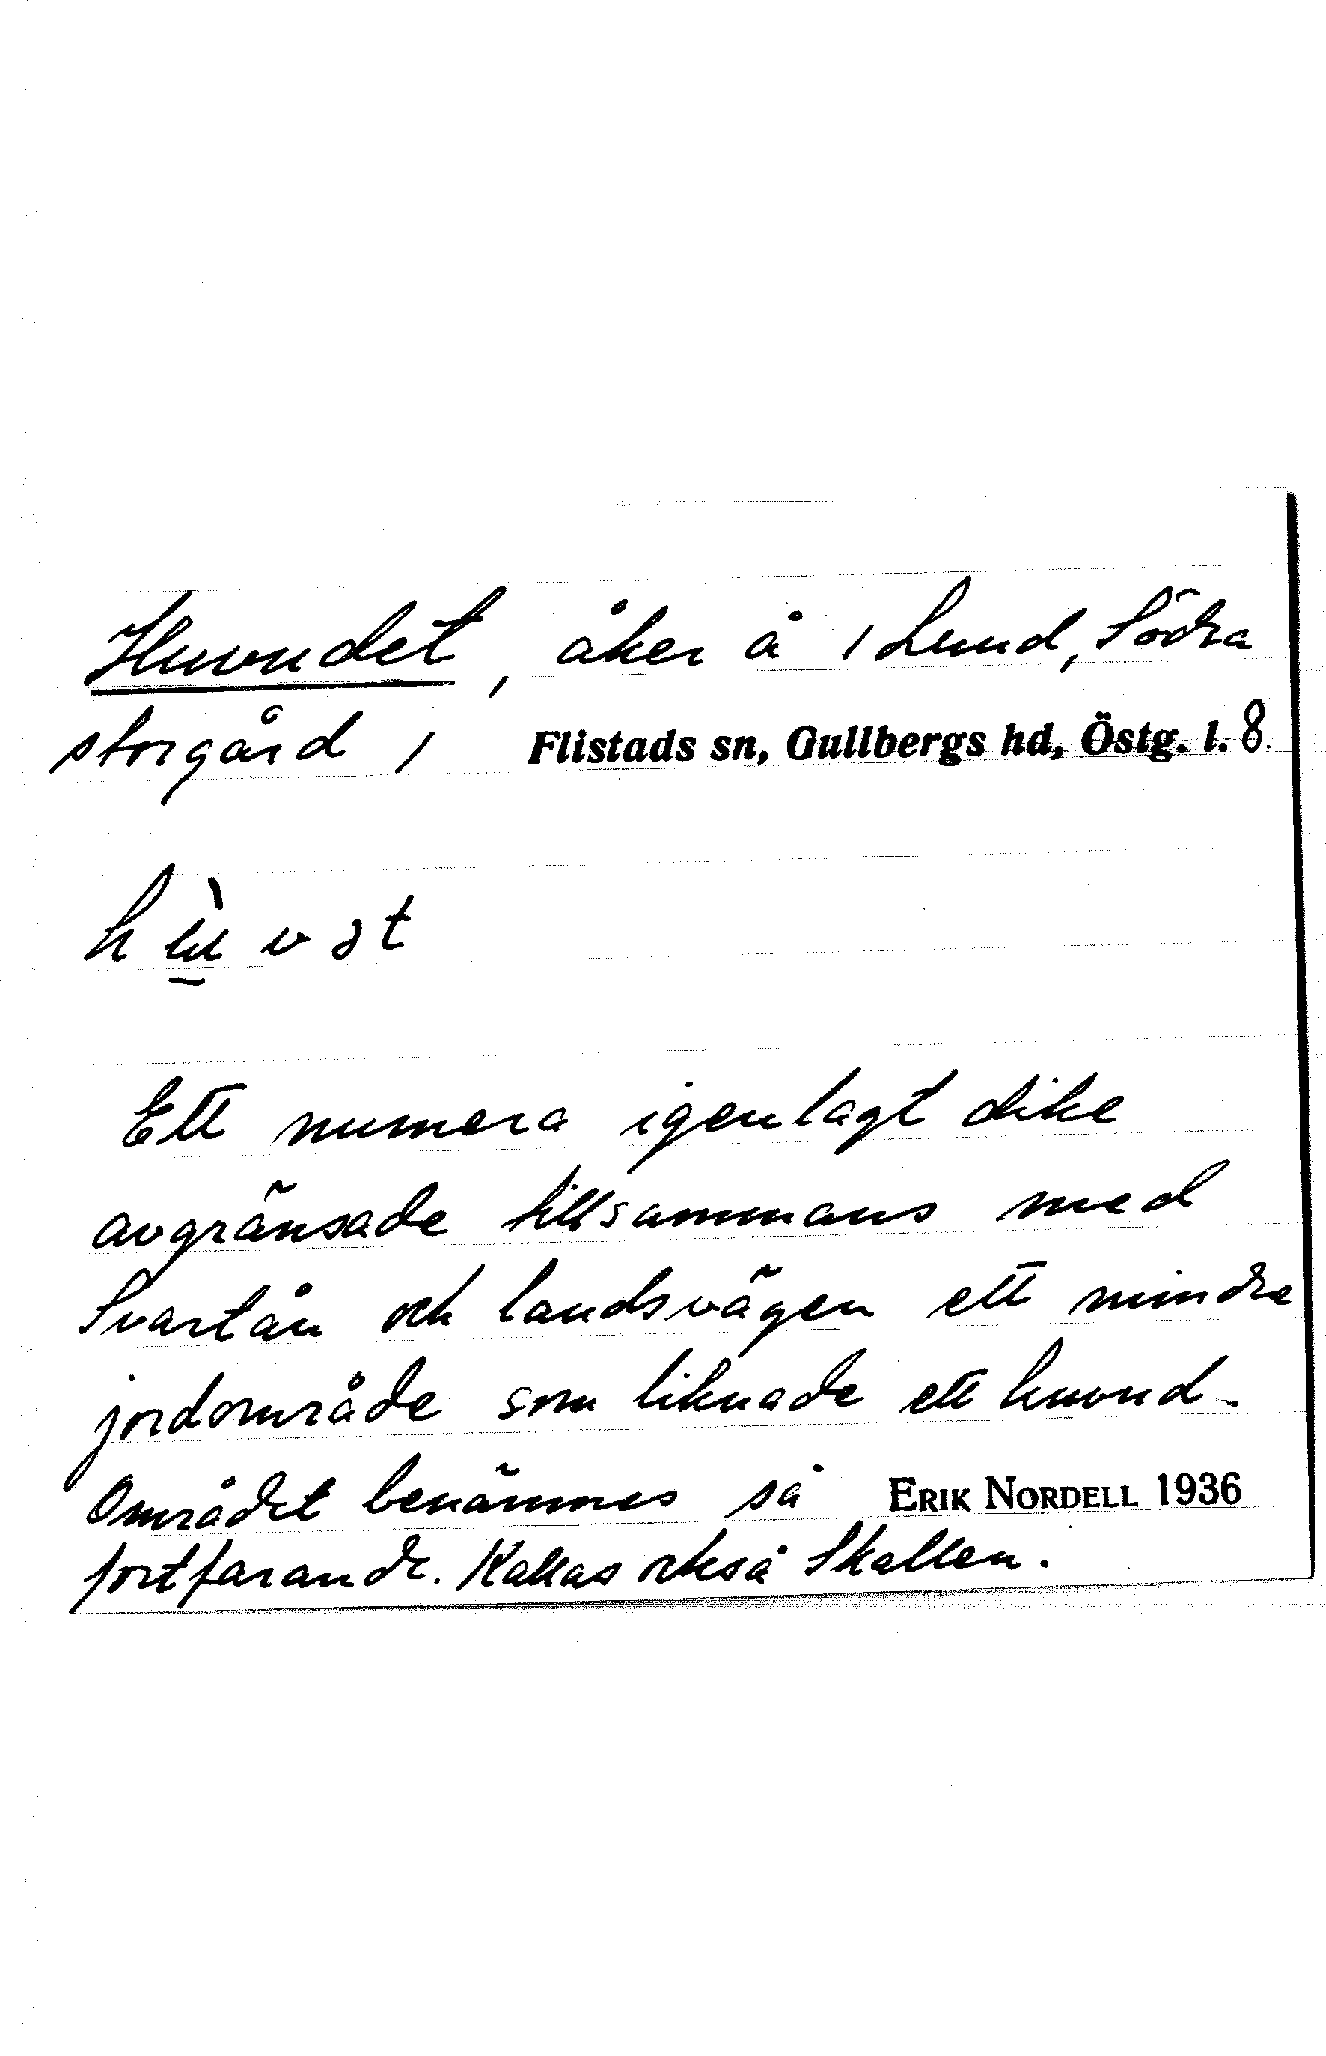 Huvudet, åker å 1 Lund, Södra
storgård, Flistads sn, Gullbergs hd, Östg. l. 8
Ett numera igenlagt dike
avgränsade tillsammans med
Svartån och landsvägen ett mindre
jordområde som liknade ett huvud.
Området benämnes så ERIK NORDELL 1936
fortfarande. Kallas också Skallen.